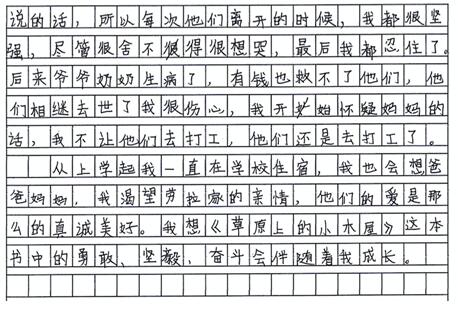 说的话，所以每次他们离开的时候，我都很坚
强，尽管很舍不得很想哭，最后我都忍住了。
后来爷爷奶奶生病了，有钱也救不了他们，他
们相继去世了我很伤心，我开始怀疑妈妈的
话，我不让他们去打工，他们还是去打工了。
从上学起我一直在学校住宿，我也会想爸
爸妈妈，我渴望劳拉家的亲情，他们的爱是那
么的真诚美好。我想《草原上的小木屋》这本
书中的勇敢、坚毅、奋斗会伴随着我成长。